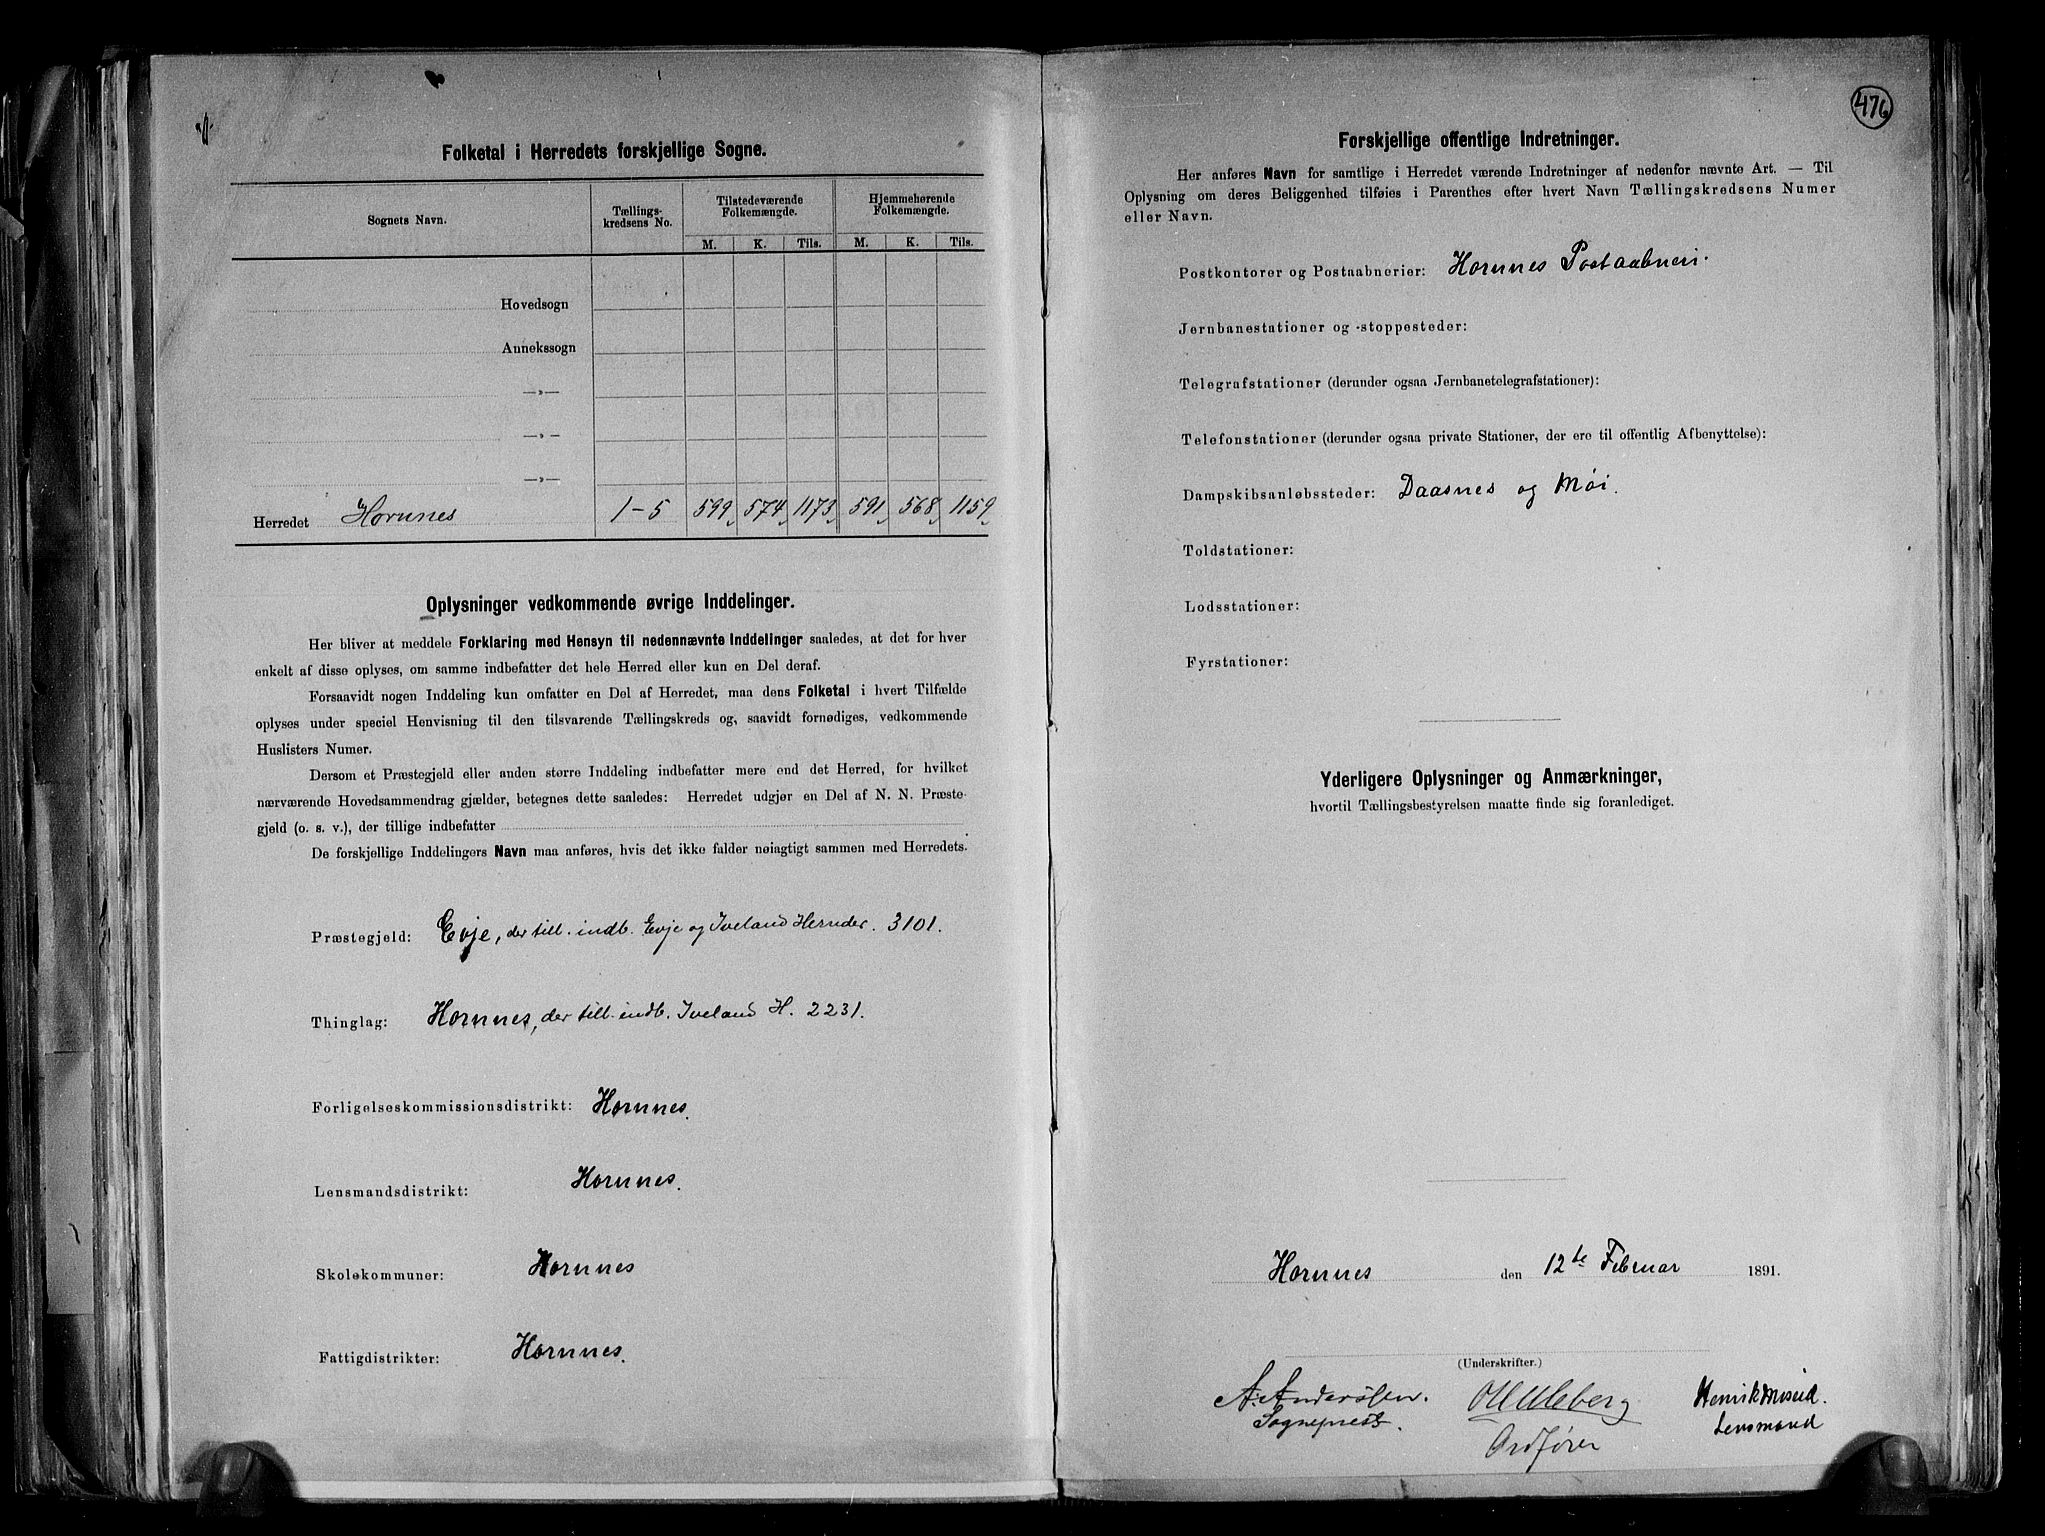 Folketal i Herredets forskjellige Sogne.
Sognets Navn. Tællings-kredsens No. Tilstedeværende Folkemængde. Hjemmehørende Folkemængde.
M. K. Tils. M. K. Tils.
Hovedsogn
Annekssogn
—»—
—»—
—»—
Herredet Hornnes 1-5 599 574 1173 591 568 1159
Oplysninger vedkommende øvrige Inddelinger.
Her bliver at meddele Forklaring med Hensyn til nedennævnte Inddelinger saaledes, at det for hver
enkelt af disse oplyses, om samme indbefatter det hele Herred eller kun en Del deraf.
Forsaavidt nogen Inddeling kun omfatter en Del af Herredet, maa dens Folketal i hvert Tilfælde
oplyses under speciel Henvisning til den tilsvarende Tællingskreds og, saavidt fornødiges, vedkommende
Huslisters Numer.
Dersom et Præstegjeld eller anden større Inddeling indbefatter mere end det Herred, for hvilket
nærværende Hovedsammendrag gjælder, betegnes dette saaledes: Herredet udgjør en Del af N. N. Præste-
gjeld (o. s. v.), der tillige indbefatter
De forskjellige Inddelingers Navn maa anføres, hvis det ikke falder nøiagtigt sammen med Herredets.
Præstegjeld: Evje, der till. indb. Evje og Iveland Herreder. 3101.
Thinglag: Hornnes, der till. indb. Iveland H. 2231.
Forligelseskommissionsdistrikt: Hornnes.
Lensmandsdistrikt: Hornnes.
Skolekommuner: Hornnes
Fattigdistrikter: Hornnes.
476
Forskjellige offentlige Indretninger.
Her anføres Navn for samtlige i Herredet værende Indretninger af nedenfor nævnte Art. — Til
Oplysning om deres Beliggenhed tilføies i Parenthes efter hvert Navn Tællingskredsens Numer
eller Navn.
Postkontorer og Postaabnerier: Hornnes Postaabneri.
Jernbanestationer og -stoppesteder:
Telegrafstationer (derunder ogsaa Jernbanetelegrafstationer):
Telefonstationer (derunder ogsaa private Stationer, der ere til offentlig Afbenyttelse):
Dampskibsanløbssteder: Daasnes og Møi.
Toldstationer:
Lodsstationer:
Fyrstationer:
Yderligere Oplysninger og Anmærkninger,
hvortil Tællingsbestyrelsen maatte finde sig foranlediget.
Hornnes den 12te Februar 1891.
(Underskrifter.)
A. Anderssen. Henrik Moseid.
Sogneprest. Lensmand
Ordfører